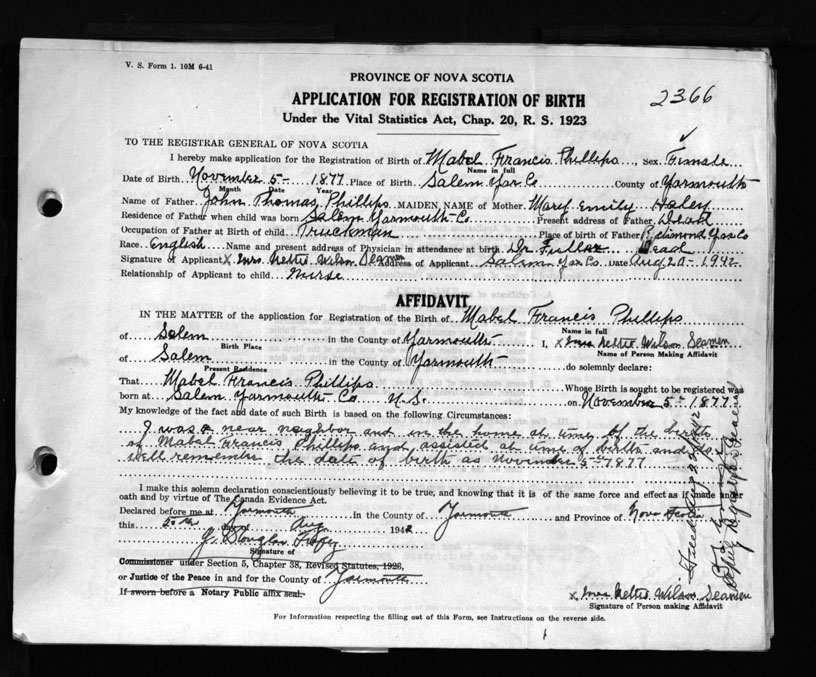 V. S. Form 1. 10M 6-41
PROVINCE OF NOVA SCOTIA
APPLICATION FOR REGISTRATION OF BIRTH
2366
Under the Vital Statistics Act, Chap. 20, R. S. 1923
TO THE REGISTRAR GENERAL OF NOVA SCOTIA
I hereby make application for the Registration of Birth of Mabel Francis Phillips, Sex Female
Name in full
Date of Birth November 5- 1877 Place of Birth Salem Yar Co County of Yarmouth
Month Date Year
Name of Father John Thomas Phillips MAIDEN NAME of Mother Emily Haley
Residence of Father when child was born Salem Yarmouth Co Present address of Father Dead
Occupation of Father at Birth of child Truckman Place of birth of Father Yar Co
Race English Name and present address of Physician in attendance at birth Dr Fuller Dead
Signature of Applicant x Mrs. Nettie Wilson Seamen Address of Applicant Salem Yar Co Date Aug 20 - 1942
Relationship of Applicant to child Nurse
AFFIDAVIT
IN THE MATTER of the application for Registration of the Birth of Mabel Francis Phillips
Name in full
of Salem in the County of Yarmouth I, x Mrs Nettie Wilson Seamen
Birth Place Name of Person Making Affidavit
of Salem in the County of Yarmouth do solemnly declare:
Present Residence
That Mabel Francis Phillips Whose Birth is sought to be registered was
born at Salem Yarmouth Co N.S. on November 5th 1877
My knowledge of the fact and date of such Birth is based on the following Circumstances:
I was a near neighbor and in the home at time of the birth
of Mabel Francis Phillips and assisted at time of birth and
well remember the date of birth as November 5th 1877
I make this solemn declaration conscientiously believing it to be true, and knowing that it is of the same force and effect as if made under
oath and by virtue of The Canada Evidence Act.
Declared before me at Yarmouth in the County of Yarmouth and Province of Nova Scotia
this 20th day Aug 1942
J. Douglas
Signature of
Commissioner under Section 5, Chapter 38, Revised Statutes, 1926,
or Justice of the Peace in and for the County of Yarmouth
If sworn before a Notary Public affix seal.
x Mrs Nettie Wilson Seamen
Signature of Person making Affidavit
For Information respecting the filling out of this Form, see Instructions on the reverse side.